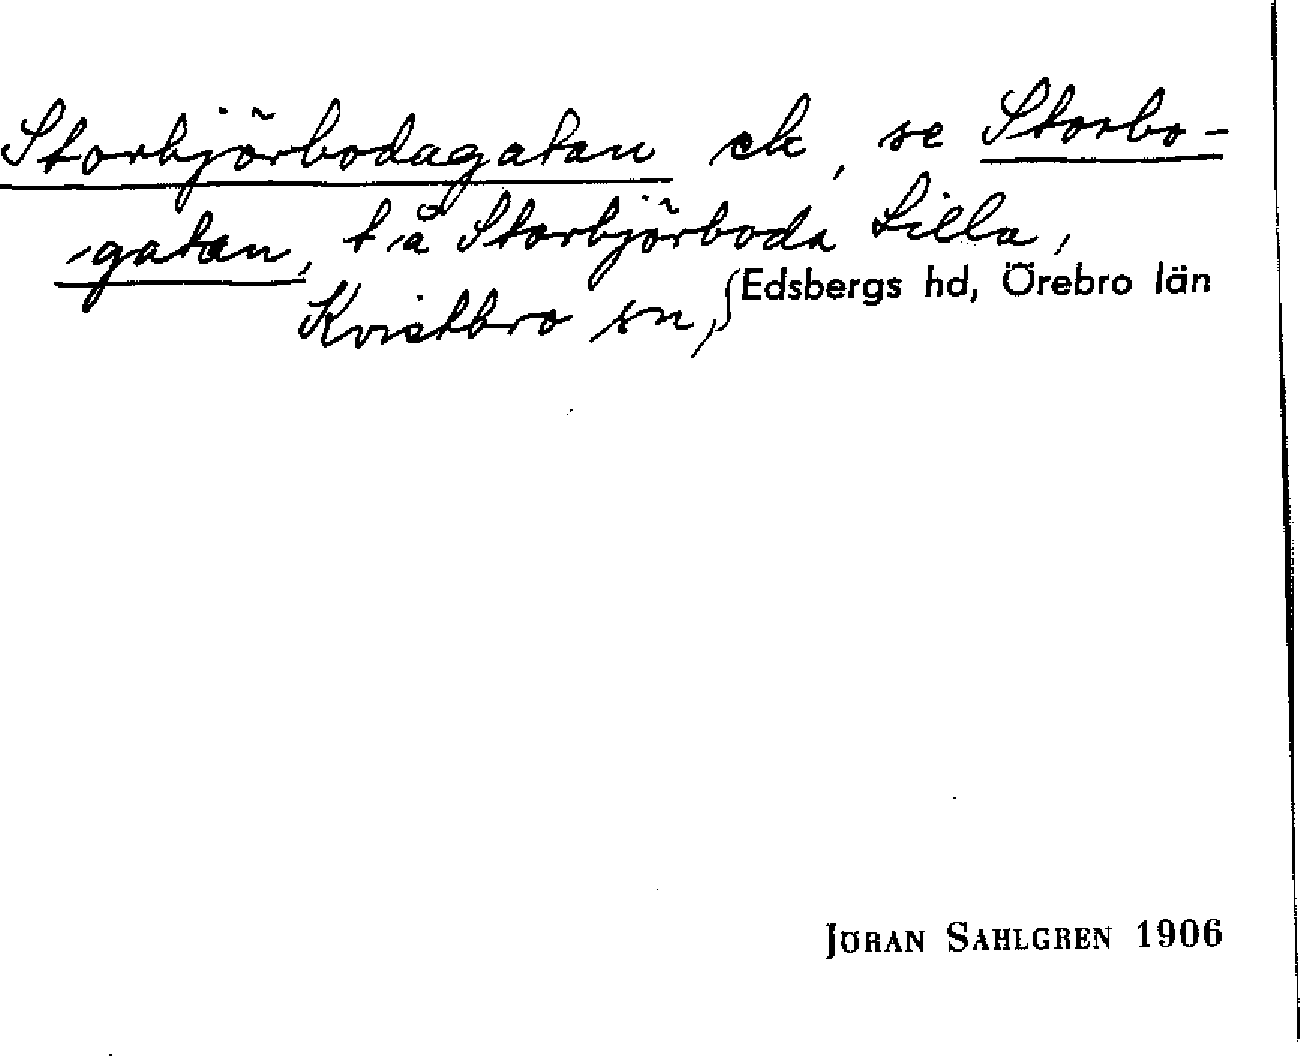 Storbjörbodagatan ek, se Storbo-
gatan, t å Storbjörboda Lilla,
Kvistbro sn, Edsbergs hd, Örebro län
JÖRAN SAHLGREN 1906